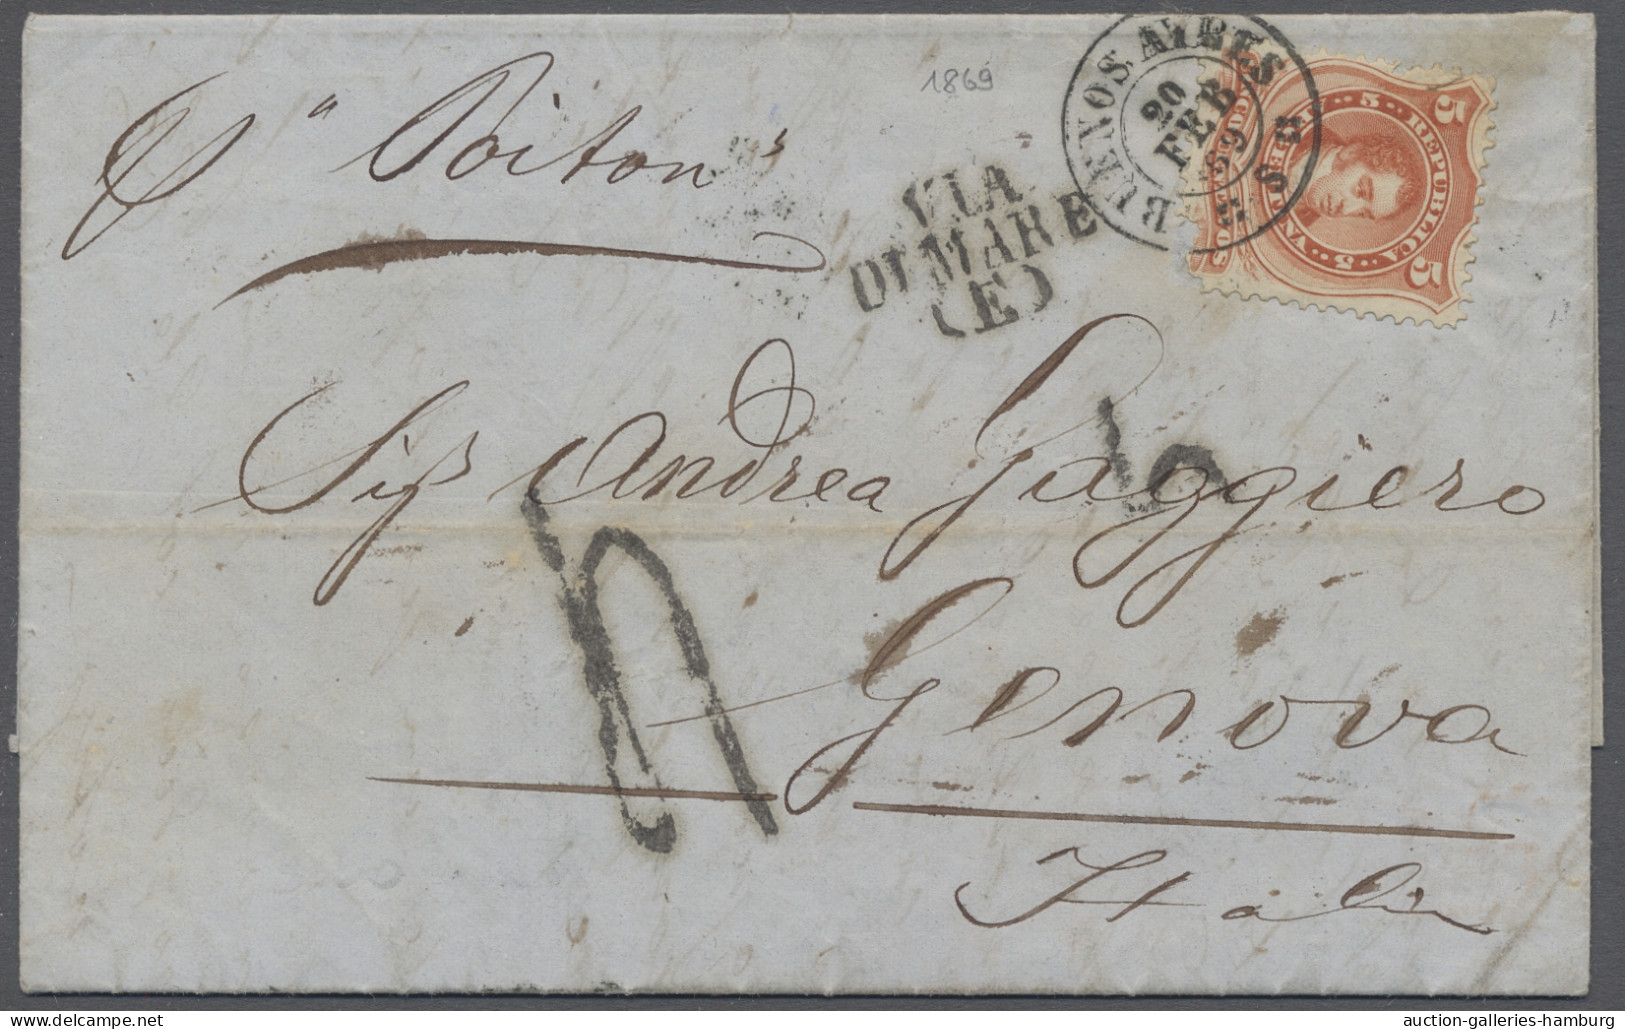 1869
BUENOS AIRES
20
FEB
69
5 REPUBLICA
5 5
p "Poitou"
VIA
DI MARE
(E)
Sig Andrea Gaggiero
Genova
Italia
delcampe.net
auction-galleries-hamburg